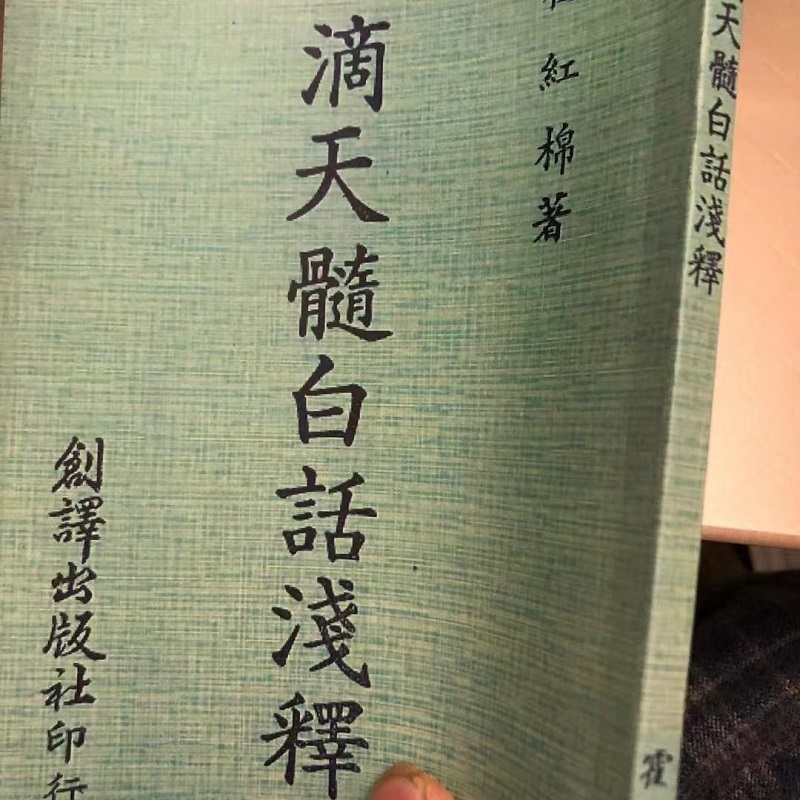 紅棉著
滴天髓白話淺釋
創譯出版社印行
天髓白話淺釋